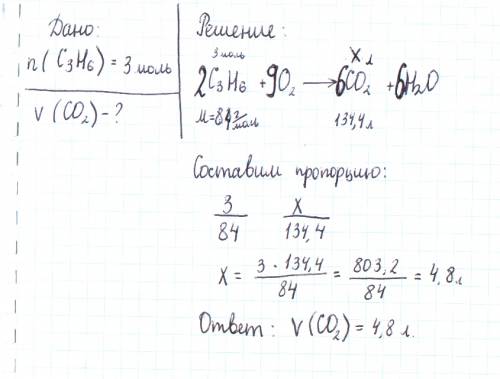 Дано:
n(C₃H₆) = 3 моль
V(CO₂) - ?
Решение:
3 моль X л
2C₃H₆ + 9O₂ ⟶ 6CO₂ + 6H₂O
M=84 г/моль 134,4 л
Составим пропорцию:
3/84 X/134,4
X = 3 · 134,4/84 = 803,2/84 = 4,8 л
Ответ: V(CO₂) = 4,8 л.